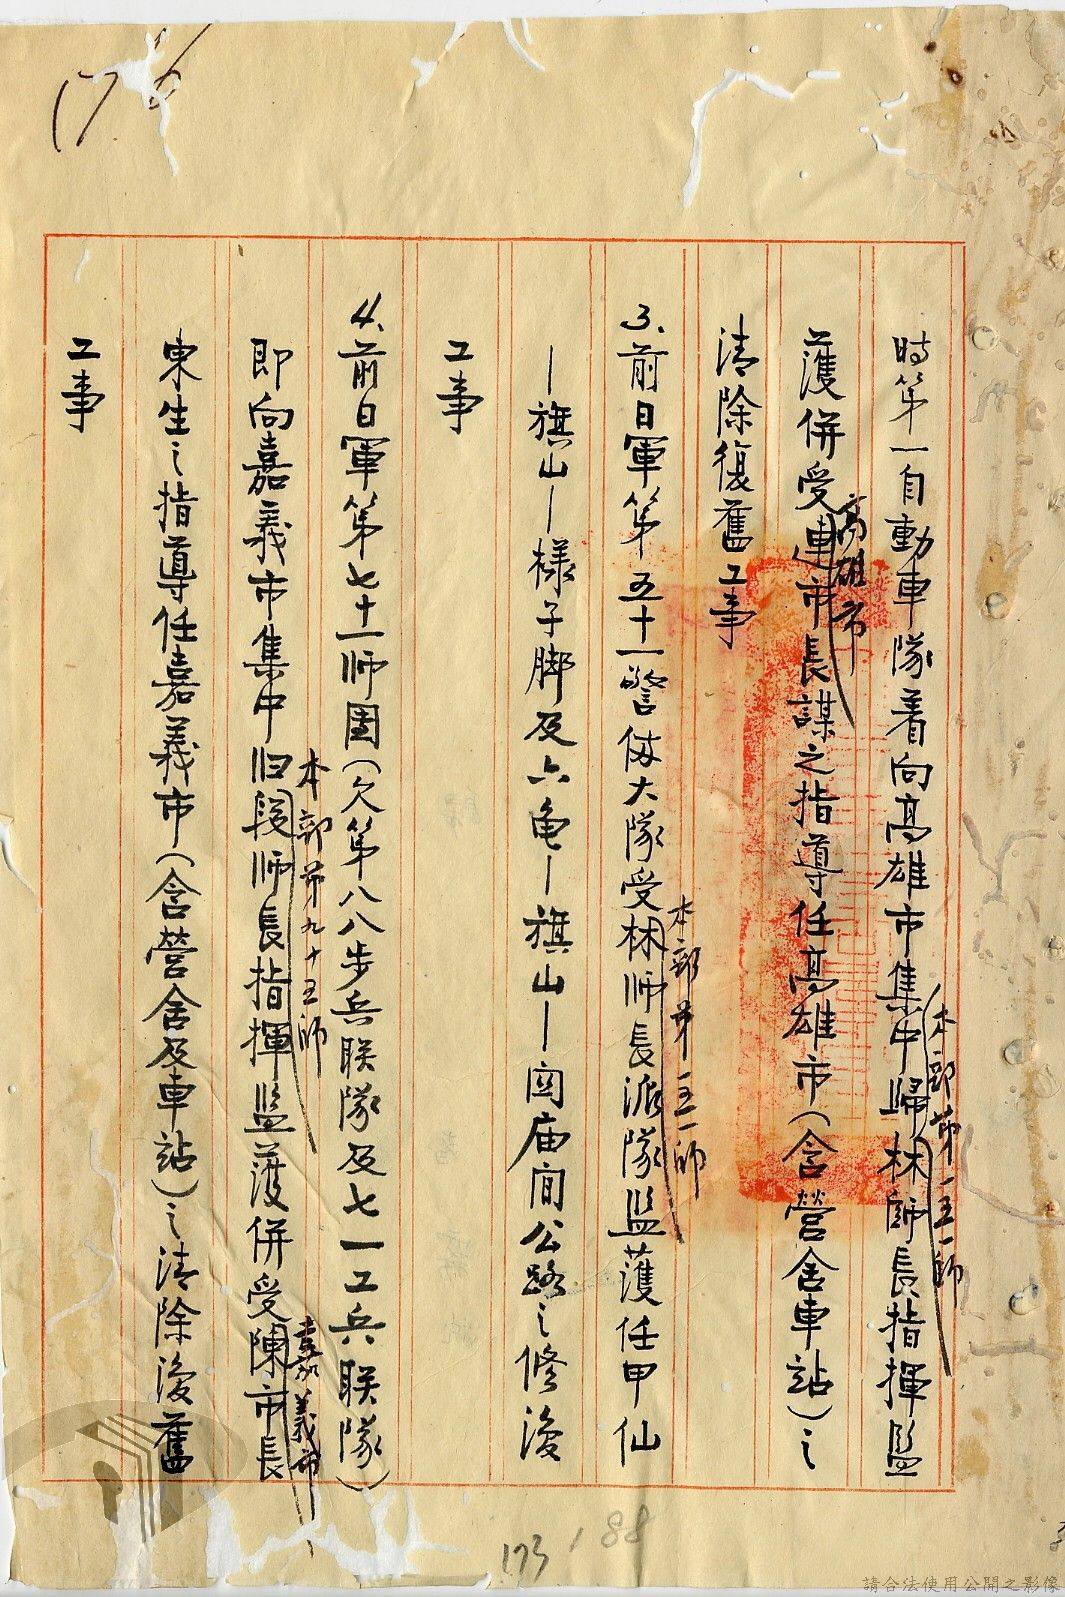 176
時第一自動車隊着向高雄市集中歸林師長指揮監
本部第一五一師
護併受連市長謀之指導任高雄市(含營舍車站)之
高雄市
清除復舊工事
3.前日軍第五十一警備大隊受林師長派隊監護任甲仙
本部第一五一師
—旗山—樣子脚及六龟—旗山—関庙间公路之修復
工事
4.前日軍第七十一师團(欠第八八步兵联隊及七一工兵联隊)
即向嘉義市集中归段师長指揮監護併受陳市長
本部第九十五師
嘉義市
東生之指導任嘉義市(含營舍及車站)之清除復舊
工事
173
188
請合法使用公開之影像